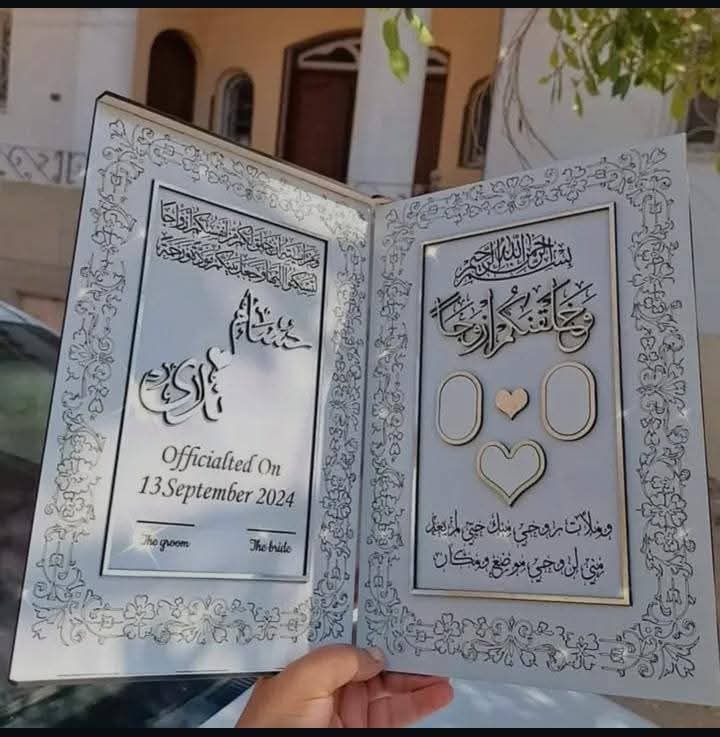 ومن آياته أن خلق لكم من أنفسكم أزواجا
لتسكنوا إليها وجعل بينكم مودة ورحمة
حسام
Officialted On
13 September 2024
The groom
The bride
بسم الله الرحمن الرحيم
وخلقنكم أزوجاً
وملأت روحي منك حتى لم يعد
مني لروحي موضع ومكان